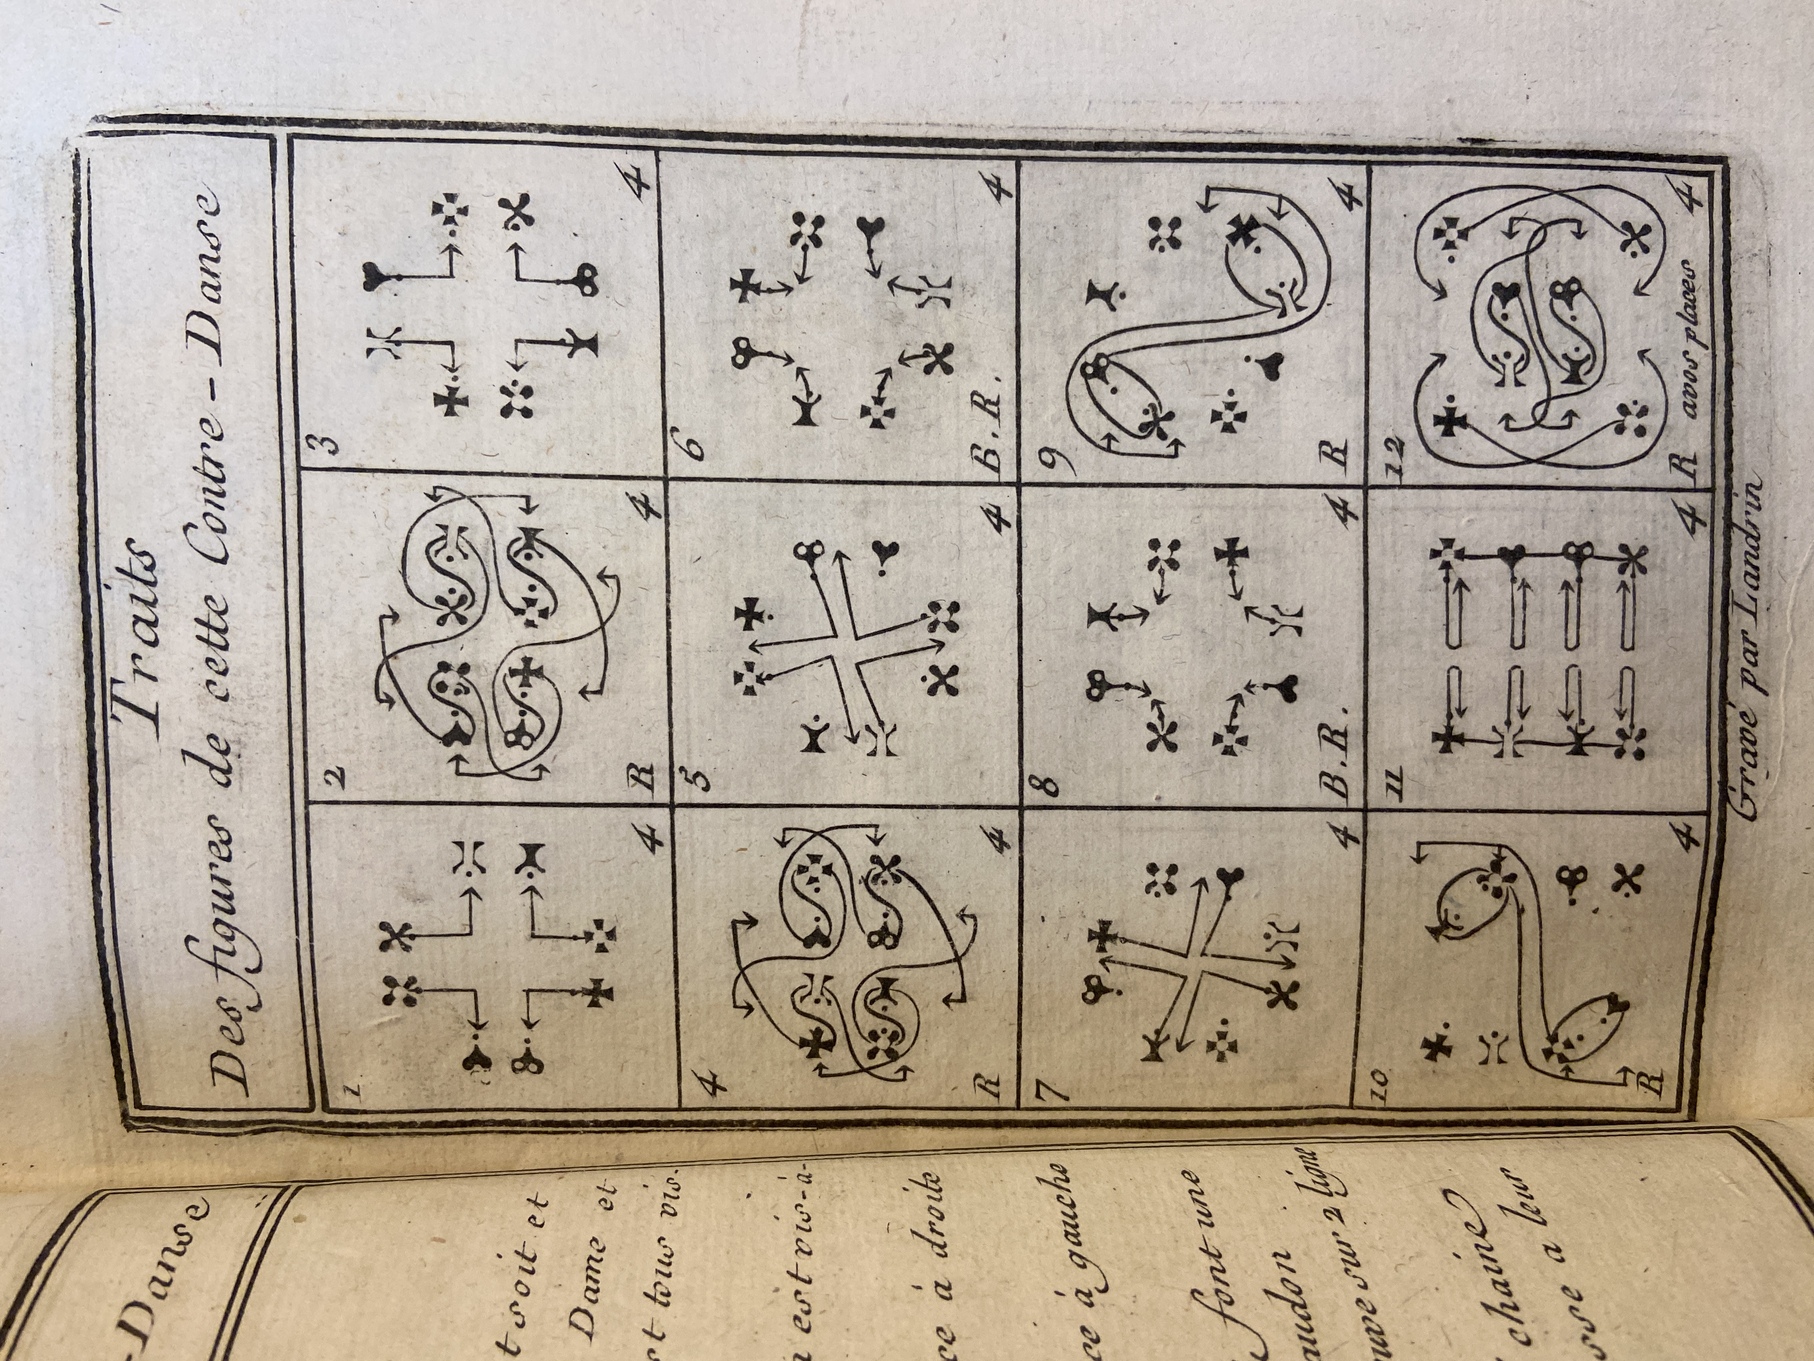 Traits
Des figures de cette Contre-Danse
1
4
2
R
4
3
4
4
R
4
5
4
6
B.R.
4
7
4
8
B.R.
4
9
R
4
10
R
4
11
4
12
R avos places 4
Gravé par Landrin
-Danse
t soit et
Dame et
st tous vis-
est vis-à-
ce à droite
ce à gauche
font une
audon
uve sur 2 ligne
chaine
sse a leur